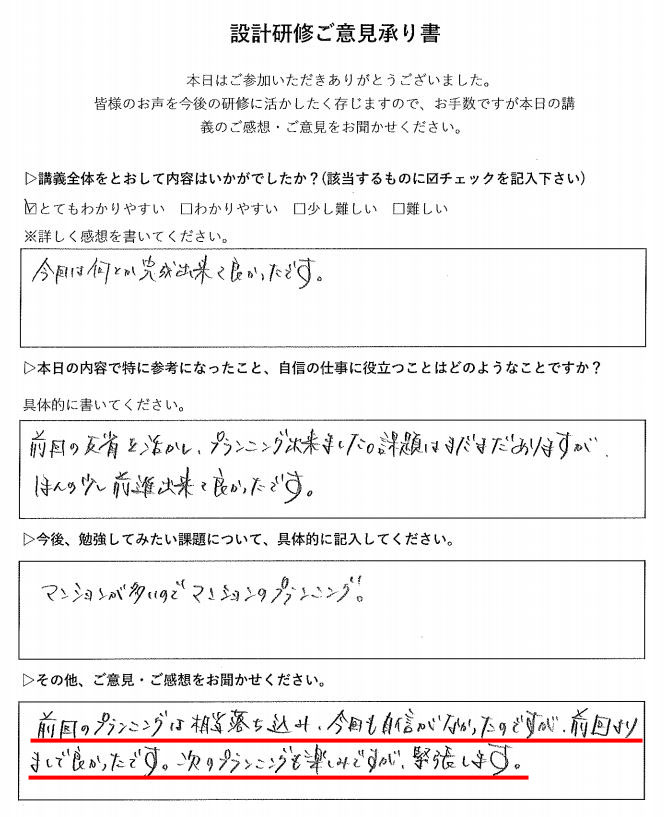 設計研修ご意見承り書
本日はご参加いただきありがとうございました。
皆様のお声を今後の研修に活かしたく存じますので、お手数ですが本日の講
義のご感想・ご意見をお聞かせください。
▷講義全体をとおして内容はいかがでしたか？(該当するものに☑チェックを記入下さい)
☑とてもわかりやすい　☐わかりやすい　☐少し難しい　☐難しい
※詳しく感想を書いてください。
今回は何とか完成出来て良かったです。
▷本日の内容で特に参考になったこと、自信の仕事に役立つことはどのようなことですか？
具体的に書いてください。
前回の反省を活かし、プランニング出来ました。課題はまだまだありますが、
ほんの少し前進出来て良かったです。
▷今後、勉強してみたい課題について、具体的に記入してください。
マンションが多いのでマンションのプランニング。
▷その他、ご意見・ご感想をお聞かせください。
前回のプランニングは相当落ち込み、今回も自信がなかったのですが、前回より
ましで良かったです。次のプランニングも楽しみですが、緊張します。